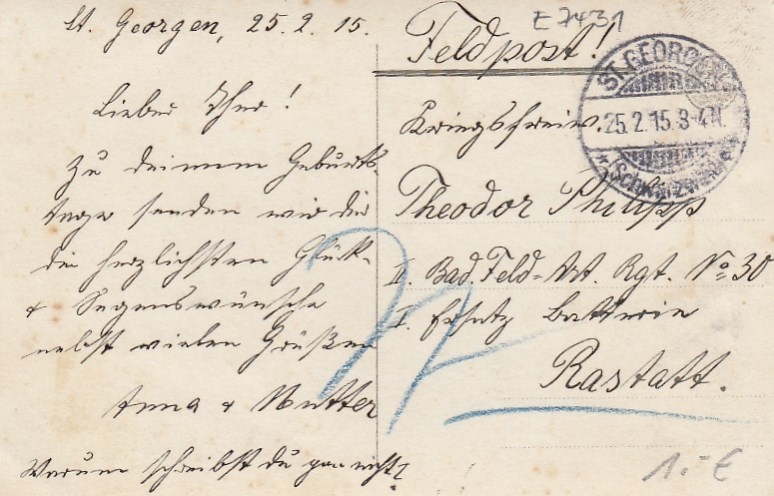 St. Georgen, 25.2.15.
Lieber Theo!
Zu deinem Geburts-
tage senden wir dir
die herzlichsten Glück-
& Segenswünsche
nebst vielen Grüßen
Anna & Mutter
Warum schreibst du gar nicht?
E 7431
Feldpost!
ST. GEORGEN
25.2.15.3-4N.
* (Schwarzwald)
Kriegsfreiw.
Theodor Philipp
II. Bad Feld-Art. Rgt. No 30
I. Ersatz Batterie
Rastatt.
1.- €